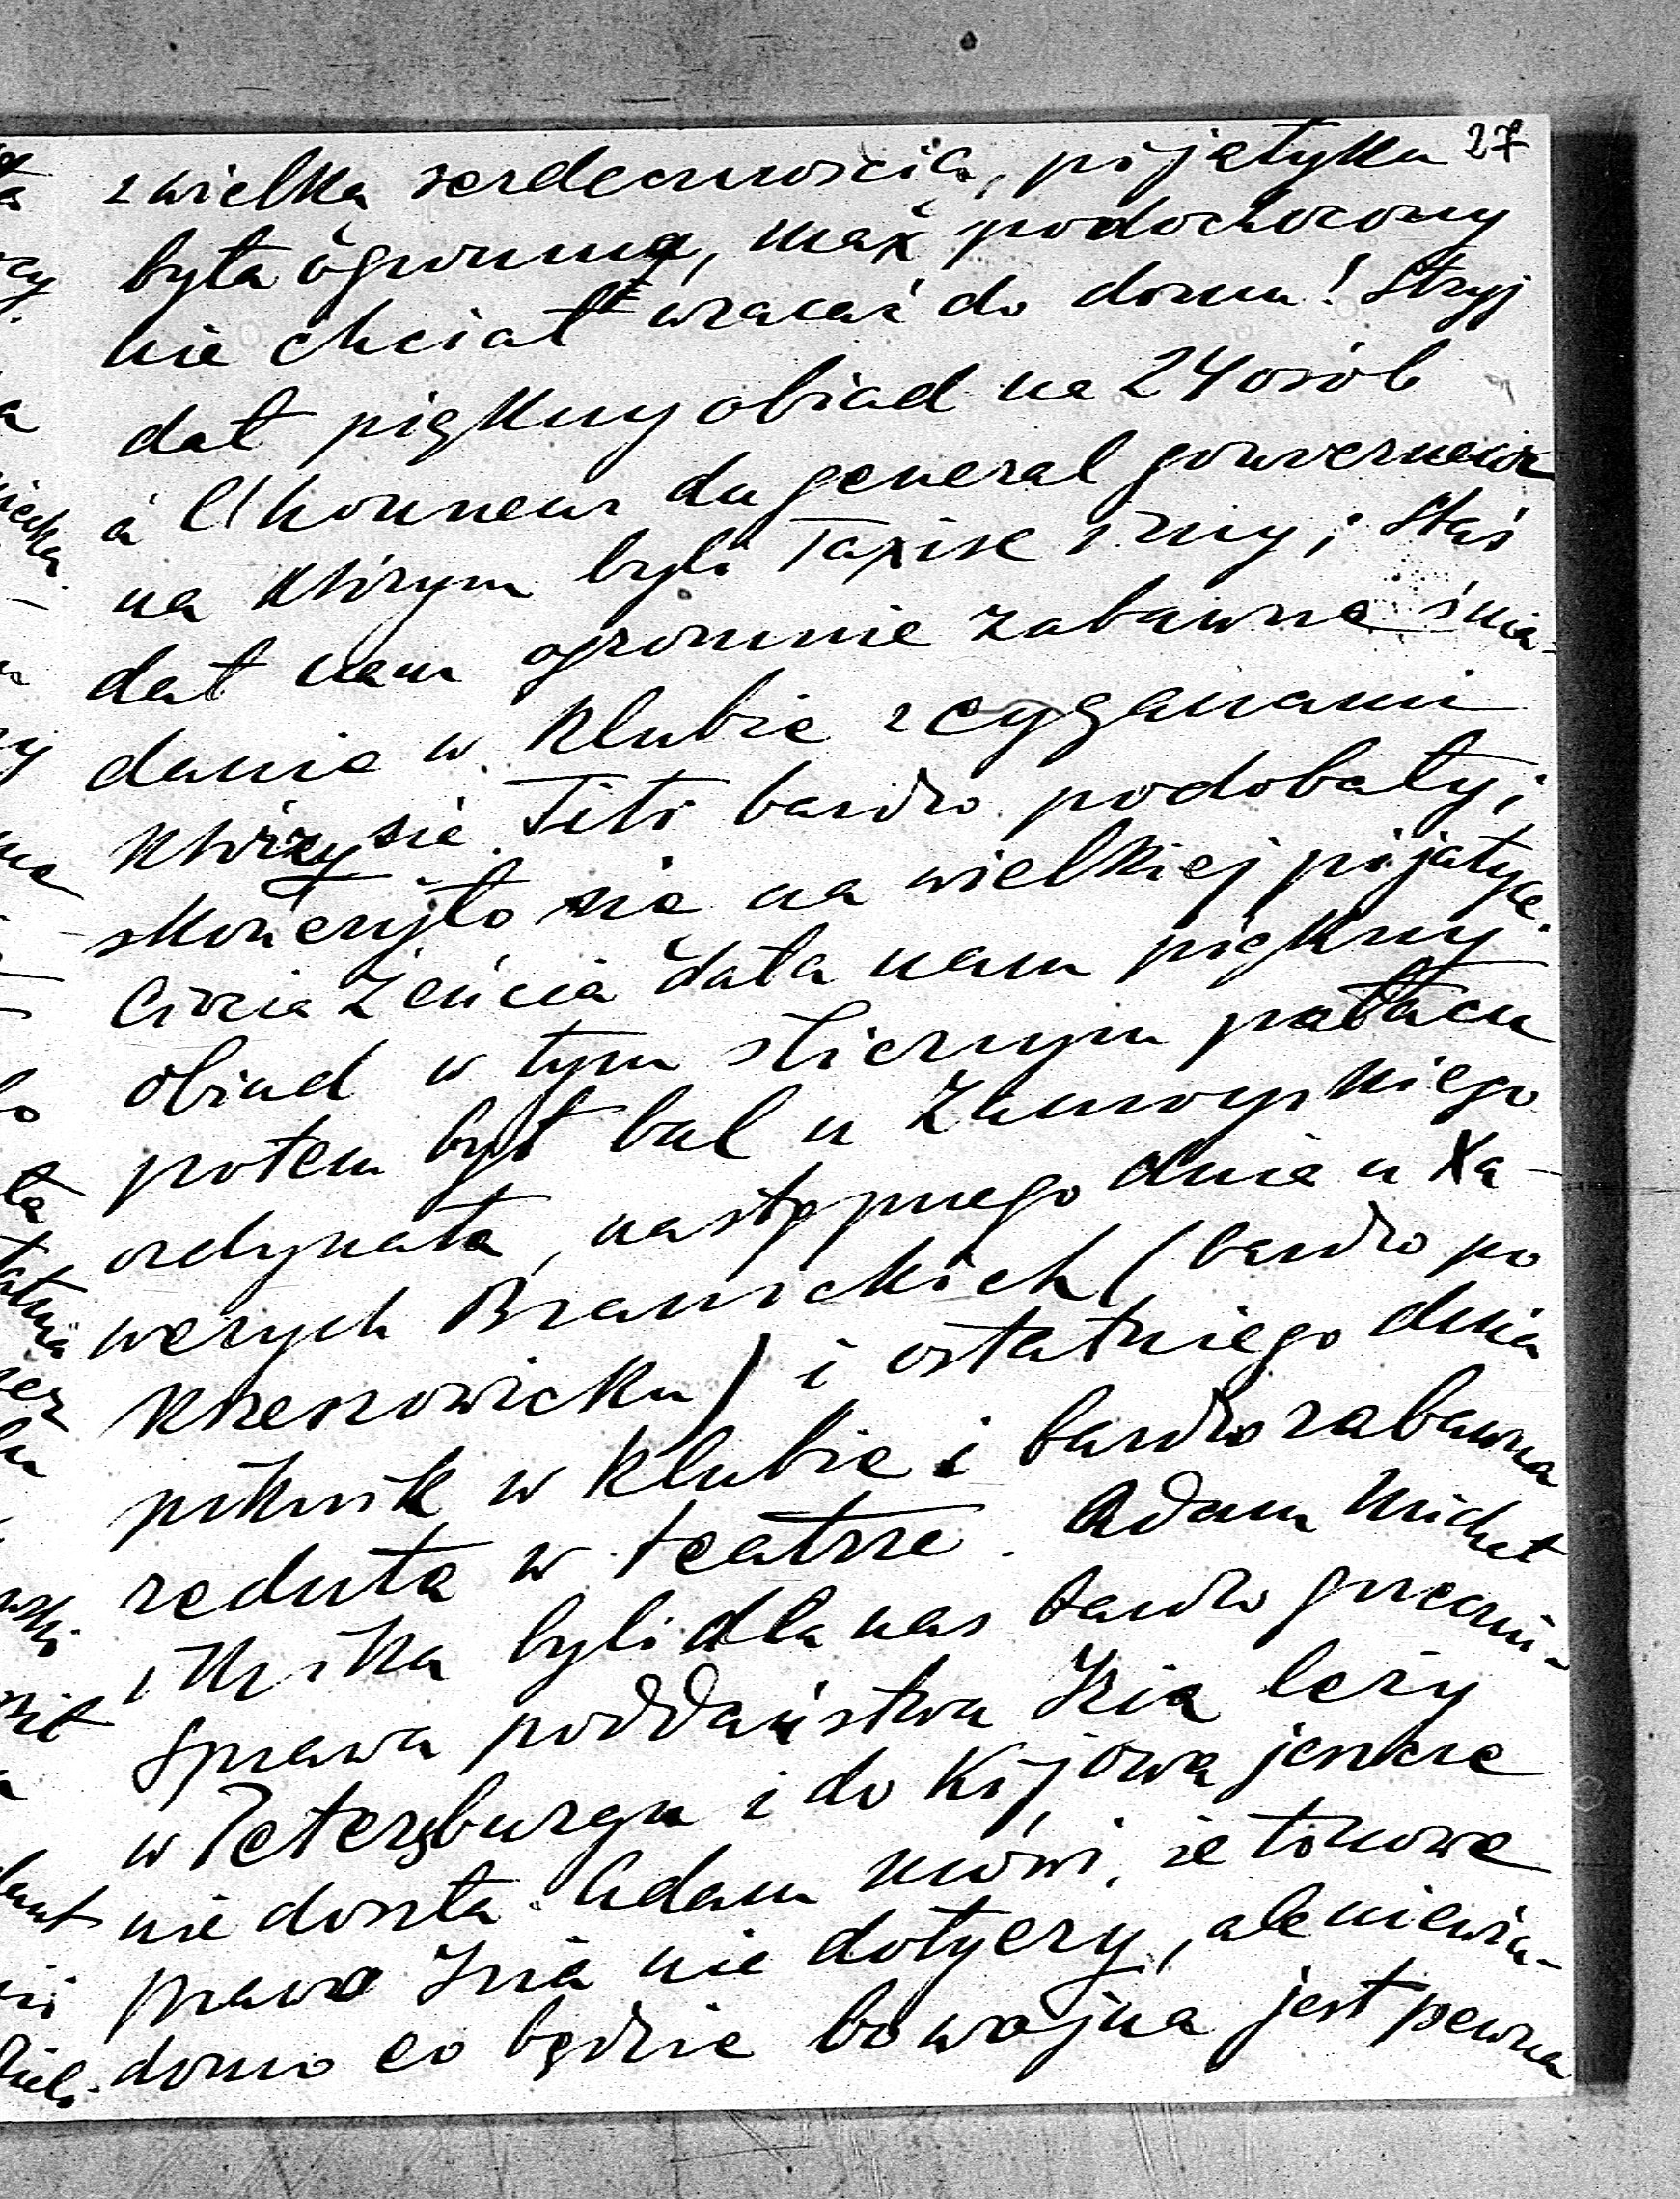 27
z wielką serdecznością, pijatyka
była ogromna, mąż podochocony
nie chciał wracać do domu! Stryj
dał piękny obiad na 24 osób
à l'honneur du general gouverneur
na którym byli Taxise i my; Staś
dał nam ogromnie zabawne śnia-
danie w Klubie z cyganami
którzy się Titi bardzo podobały;
skończyło się na wielkiej pijatyce.
Ciocia Żeńcia dała nam piękny
obiad w tym ślicznym pałacu
potem był bal u Zamoyskiego
ordynata, następnego dnia u Xa-
werych Branickich (bardzo po
krzeszowicku) i ostatniego dnia
piknik w Klubie i bardzo zabawna
reduta w teatrze. Adam Michał
i byli dla nas bardzo grzeczni.
Sprawa poddaństwa Izia leży
w Petersburgu i do Kijowa jeszcze
nie doszła. Adam mówi, że to nowe
prawo Izia nie dotyczy, ale niewia-
domo co będzie bo wojna jest pewna